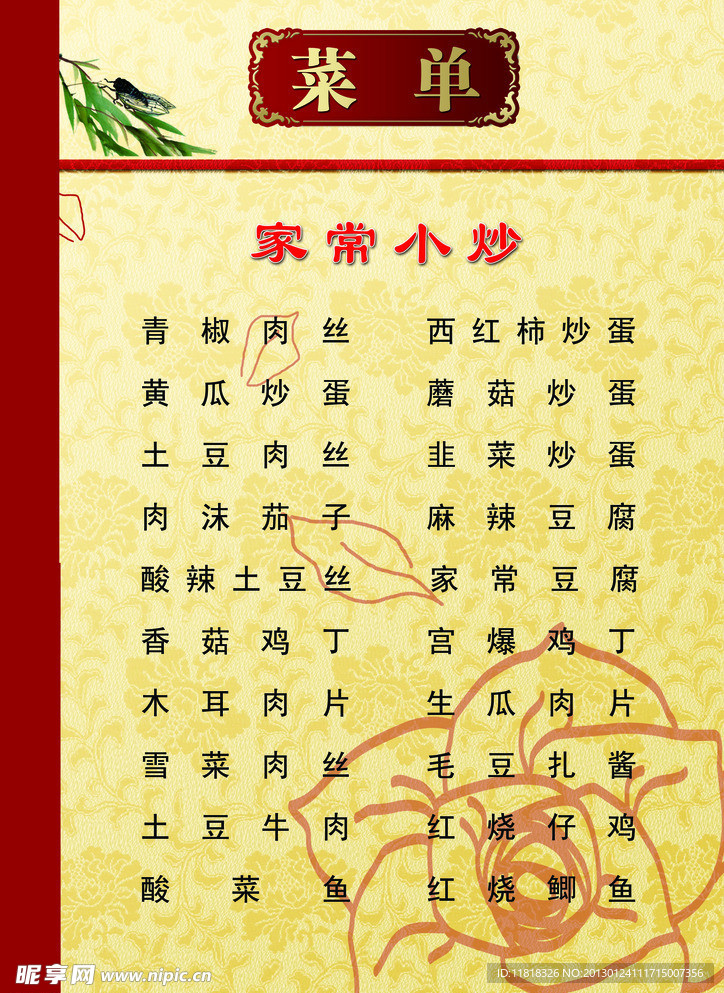 菜单
家常小炒
青椒肉丝 西红柿炒蛋
黄瓜炒蛋 蘑菇炒蛋
土豆肉丝 韭菜炒蛋
肉沫茄子 麻辣豆腐
酸辣土豆丝 家常豆腐
香菇鸡丁 宫爆鸡丁
木耳肉片 生瓜肉片
雪菜肉丝 毛豆扎酱
土豆牛肉 红烧仔鸡
酸菜鱼 红烧鲫鱼
昵享网 www.nipic.cn
ID:11818326 NO:20130124111715007356